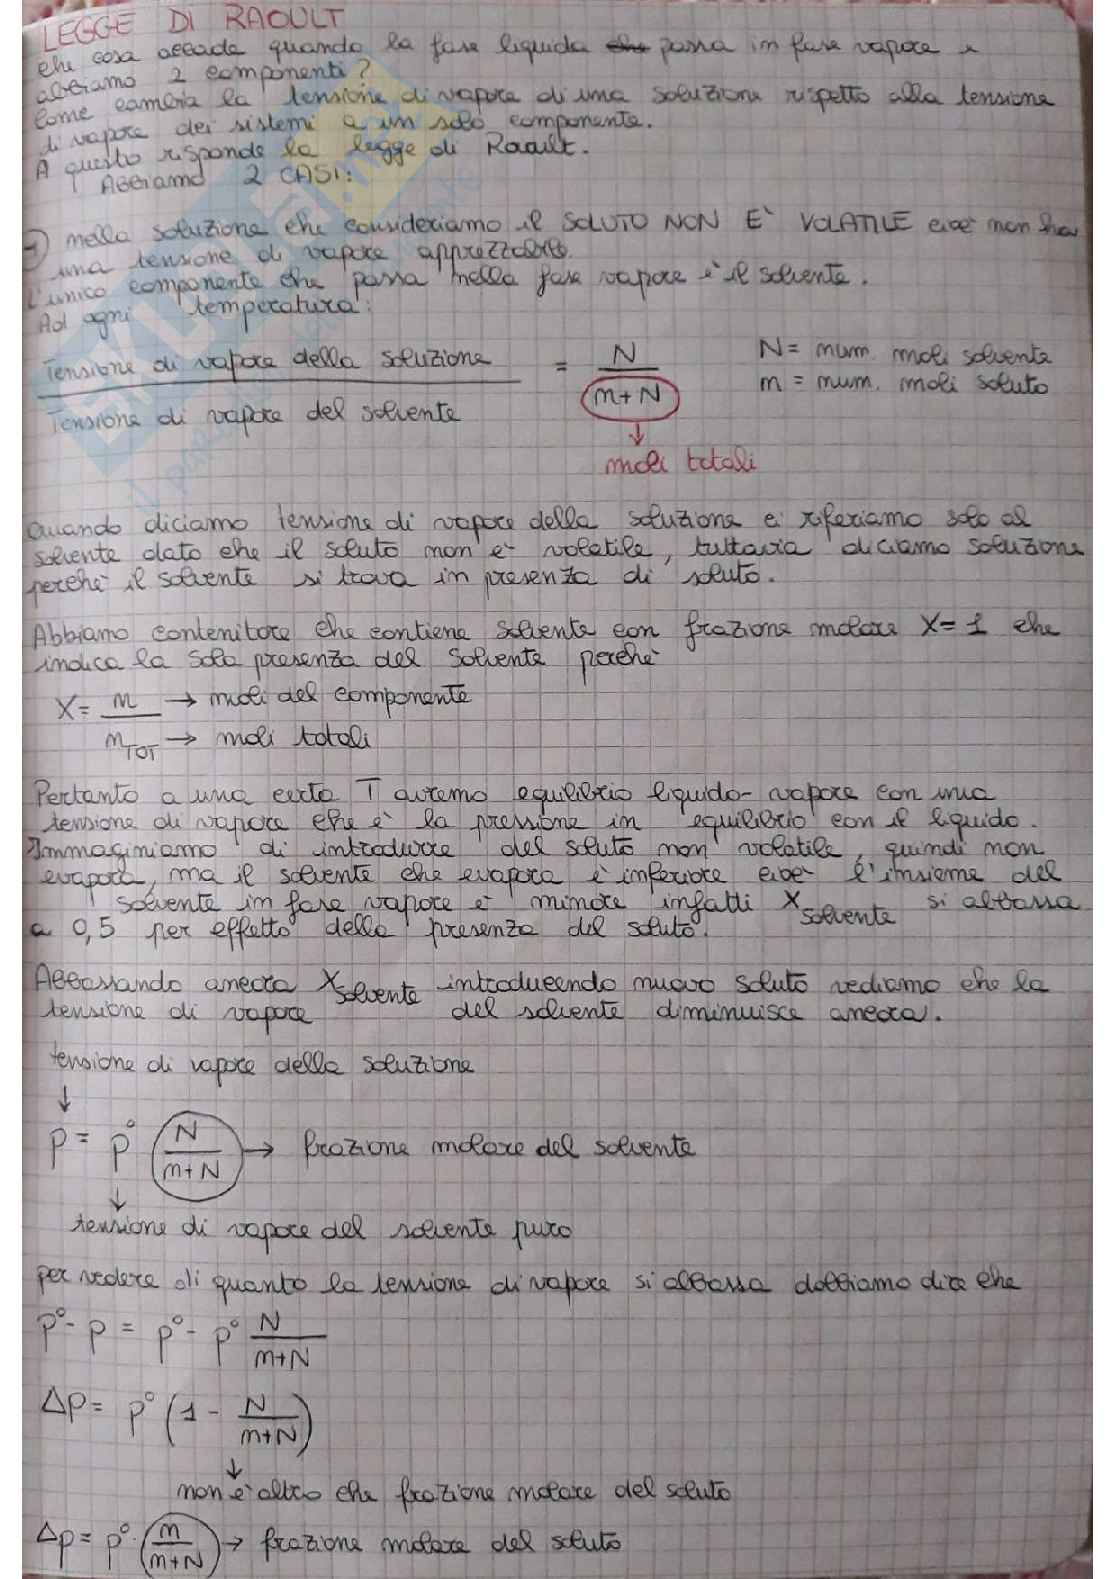 LEGGE DI RAOULT
che cosa accade quando la fase liquida che passa in fase vapore e
abbiamo 2 componenti?
Come cambia la tensione di vapore di una soluzione rispetto alla tensione
di vapore dei sistemi a un solo componente.
A questo risponde la legge di Raoult.
ABBIAMO 2 CASI:
1) nella soluzione che consideriamo il SOLUTO NON È VOLATILE cioè non ha
una tensione di vapore apprezzabile.
L'unico componente che passa nella fase vapore è il solvente.
Ad ogni temperatura:
Tensione di vapore della soluzione / Tensione di vapore del solvente = N / n+N
N = num. moli solvente
n = num. moli soluto
↓
moli totali
Quando diciamo tensione di vapore della soluzione ci riferiamo solo al
solvente dato che il soluto non è volatile, tuttavia diciamo soluzione
perché il solvente si trova in presenza di soluto.
Abbiamo contenitore che contiene solvente con frazione molare X=1 che
indica la sola presenza del solvente perché
X = n → moli del componente
n_TOT → moli totali
Pertanto a una certa T avremo equilibrio liquido-vapore con una
tensione di vapore che è la pressione in equilibrio con il liquido.
Immaginiamo di introdurre del soluto non volatile, quindi non
evapora, ma il solvente che evapora è inferiore cioè l'insieme del
solvente in fase vapore è minore infatti X_solvente si abbassa
a 0,5 per effetto della presenza del soluto.
Abbassando ancora X_solvente introducendo nuovo soluto vediamo che la
tensione di vapore del solvente diminuisce ancora.
tensione di vapore della soluzione
↓
p = p° (N / n+N) → frazione molare del solvente
↓
tensione di vapore del solvente puro
per vedere di quanto la tensione di vapore si abbassa dobbiamo dire che
p° - p = p° - p° N / n+N
Δp = p° (1 - N / n+N)
↓
non è altro che frazione molare del soluto
Δp = p° · (n / n+N) → frazione molare del soluto